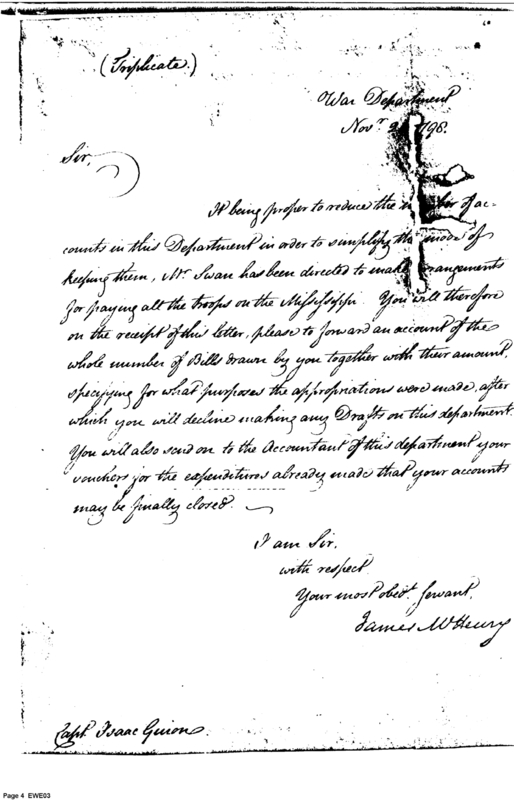 (Triplicate.)
War Department
Novr. 1798.
Sir,
It being proper to reduce the number of ac-
counts in this Department in order to simplify the mode of
keeping them, Mr. Swan has been directed to make arrangements
for paying all the troops on the Mississippi. You will therefore
on the receipt of this letter, please to forward an account of the
whole number of Bills drawn by you together with their amount,
specifying for what purposes the appropriations were made, after
which you will decline making any Drafts on this department.
You will also send on to the Accountant of this department your
vouchers for the expenditures already made that your accounts
may be finally closed.
I am Sir,
with respect
Your most obedt. Servant.
James McHenry
Capt. Isaac Guion.
Page 4 EWE03